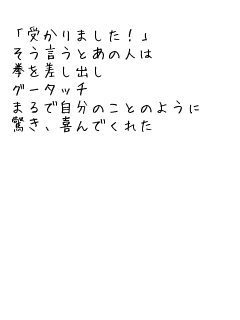 「受かりました！」
そう言うとあの人は
拳を差し出し
グータッチ
まるで自分のことのように
驚き、喜んでくれた